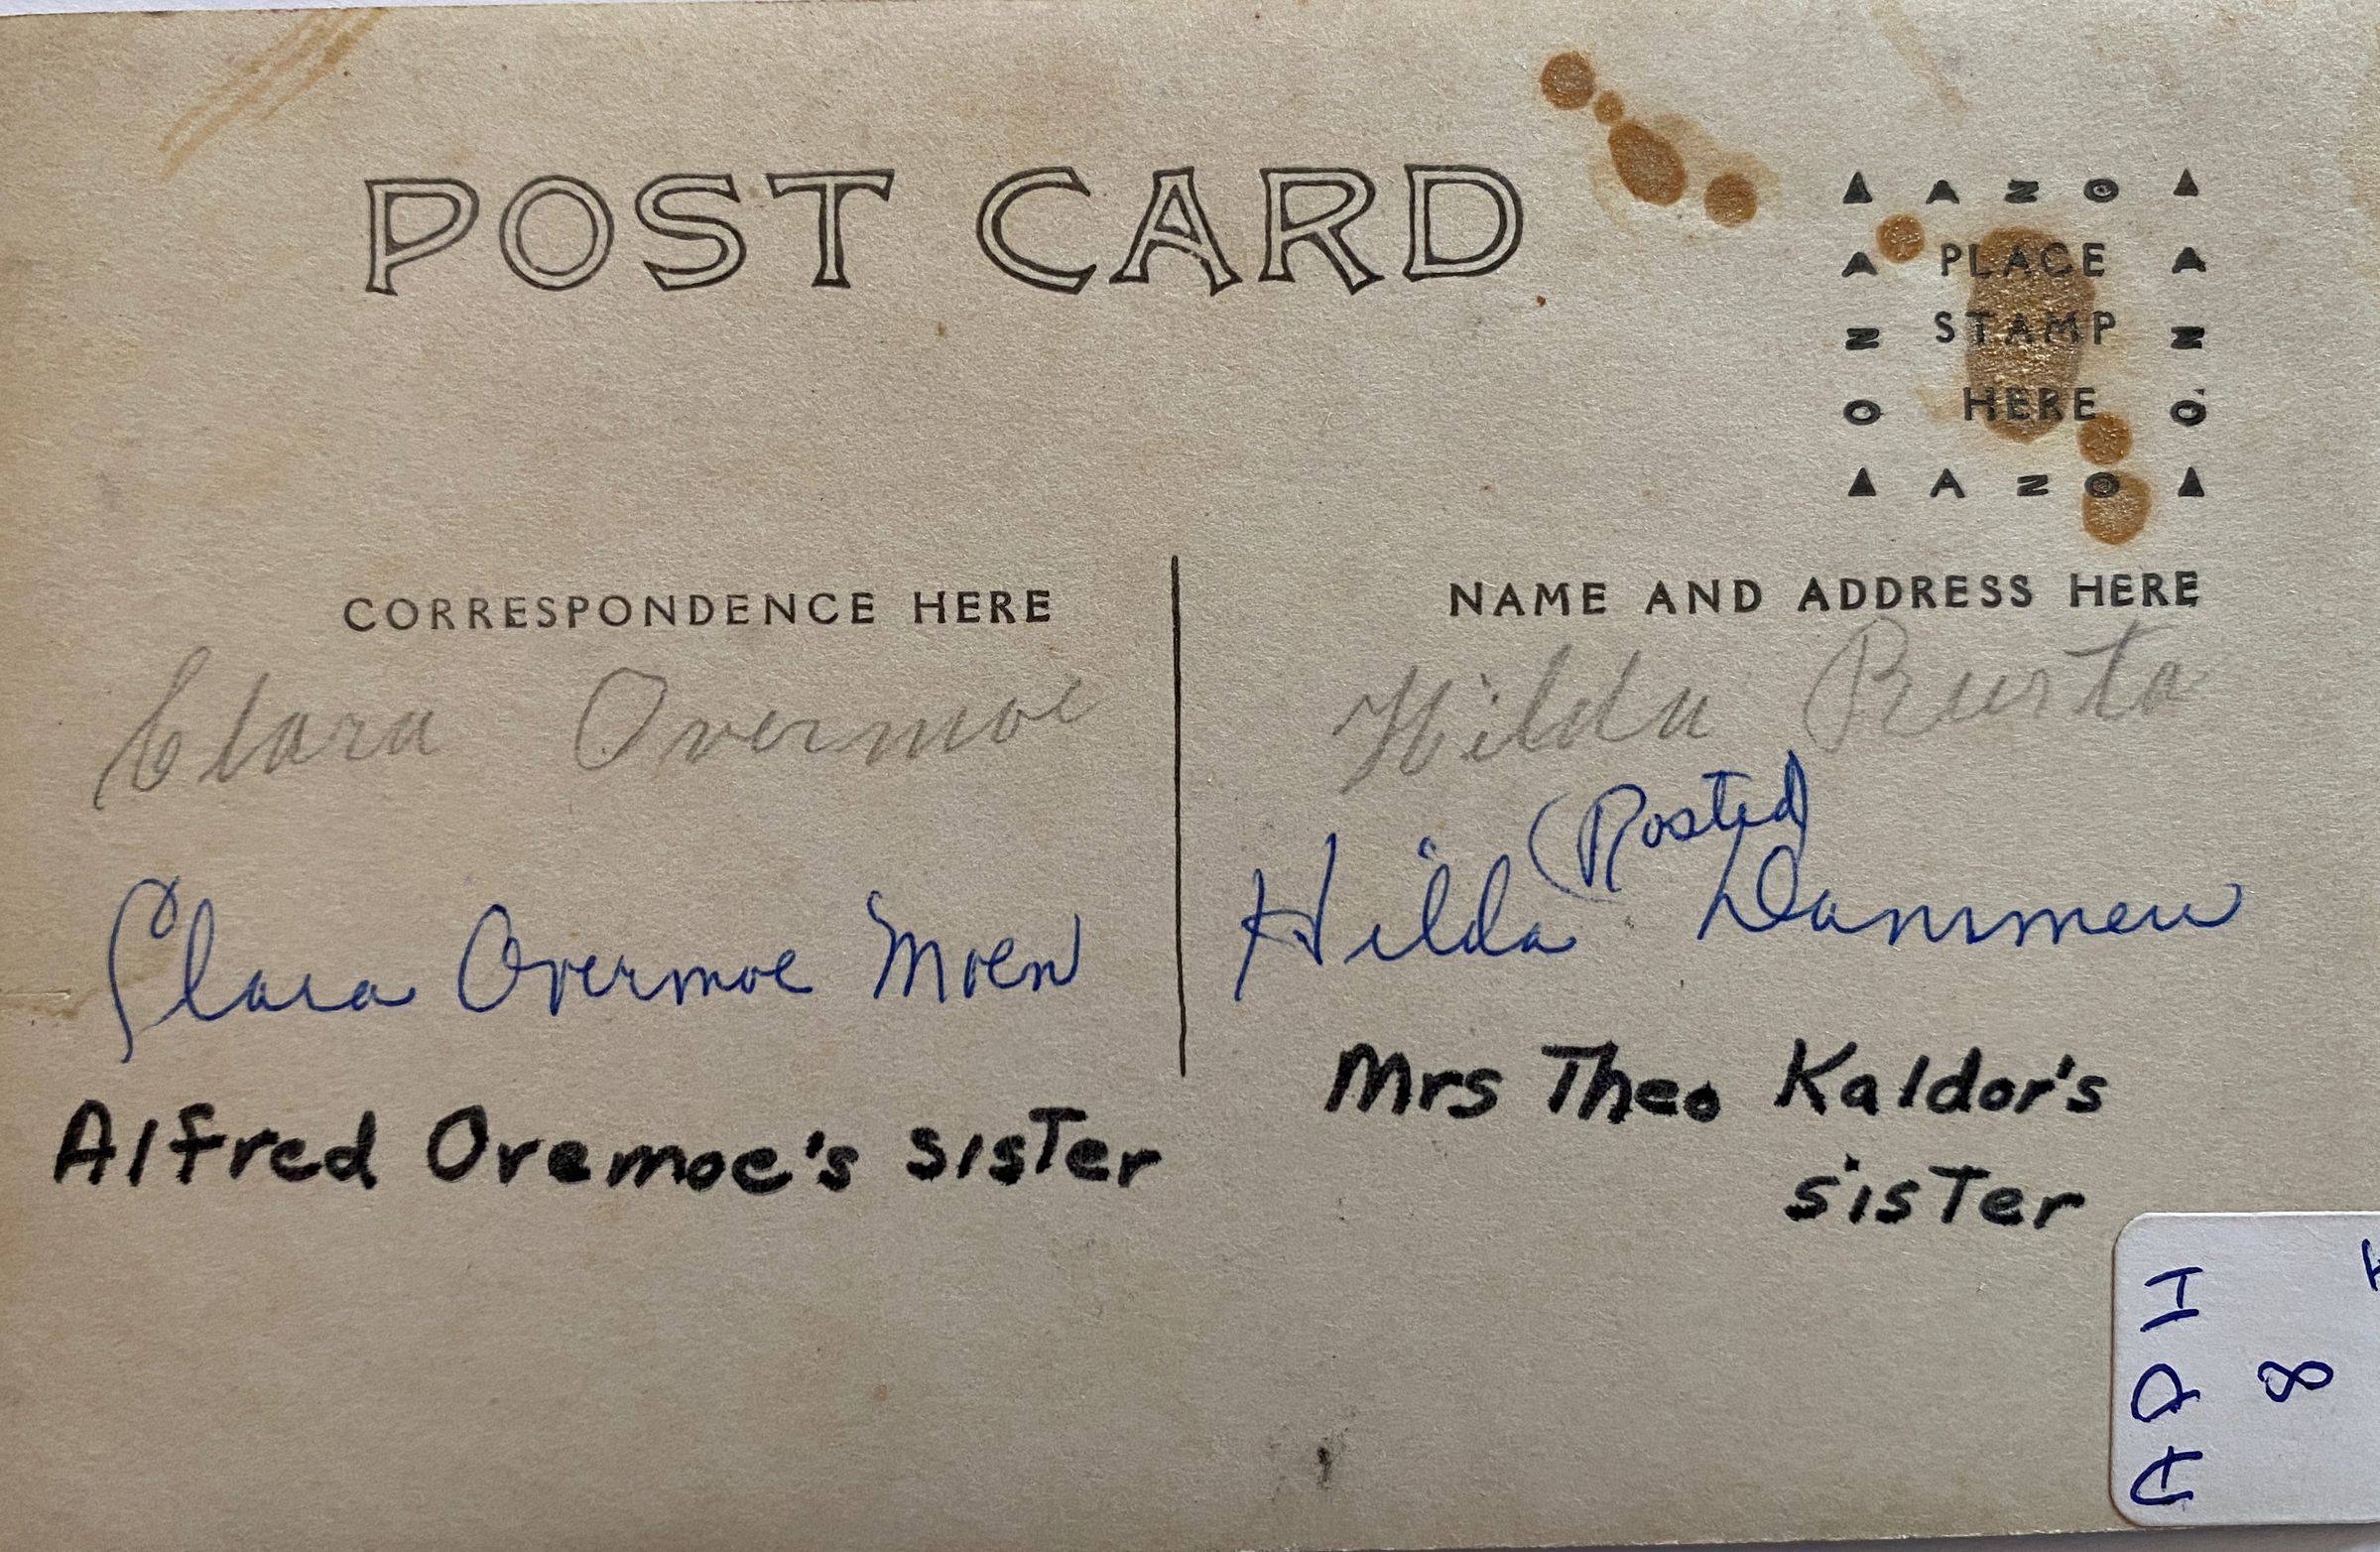 POST CARD
▲ A N O ▲
A PLACE A
N STAMP N
O HERE O
▲ A N O ▲
CORRESPONDENCE HERE
Clara Overmoe
Clara Overmoe Moen
Alfred Overmoe's sister
NAME AND ADDRESS HERE
Hilda Rusta
(Rosted)
Hilda Dammen
Mrs Theo Kaldor's
sister
8